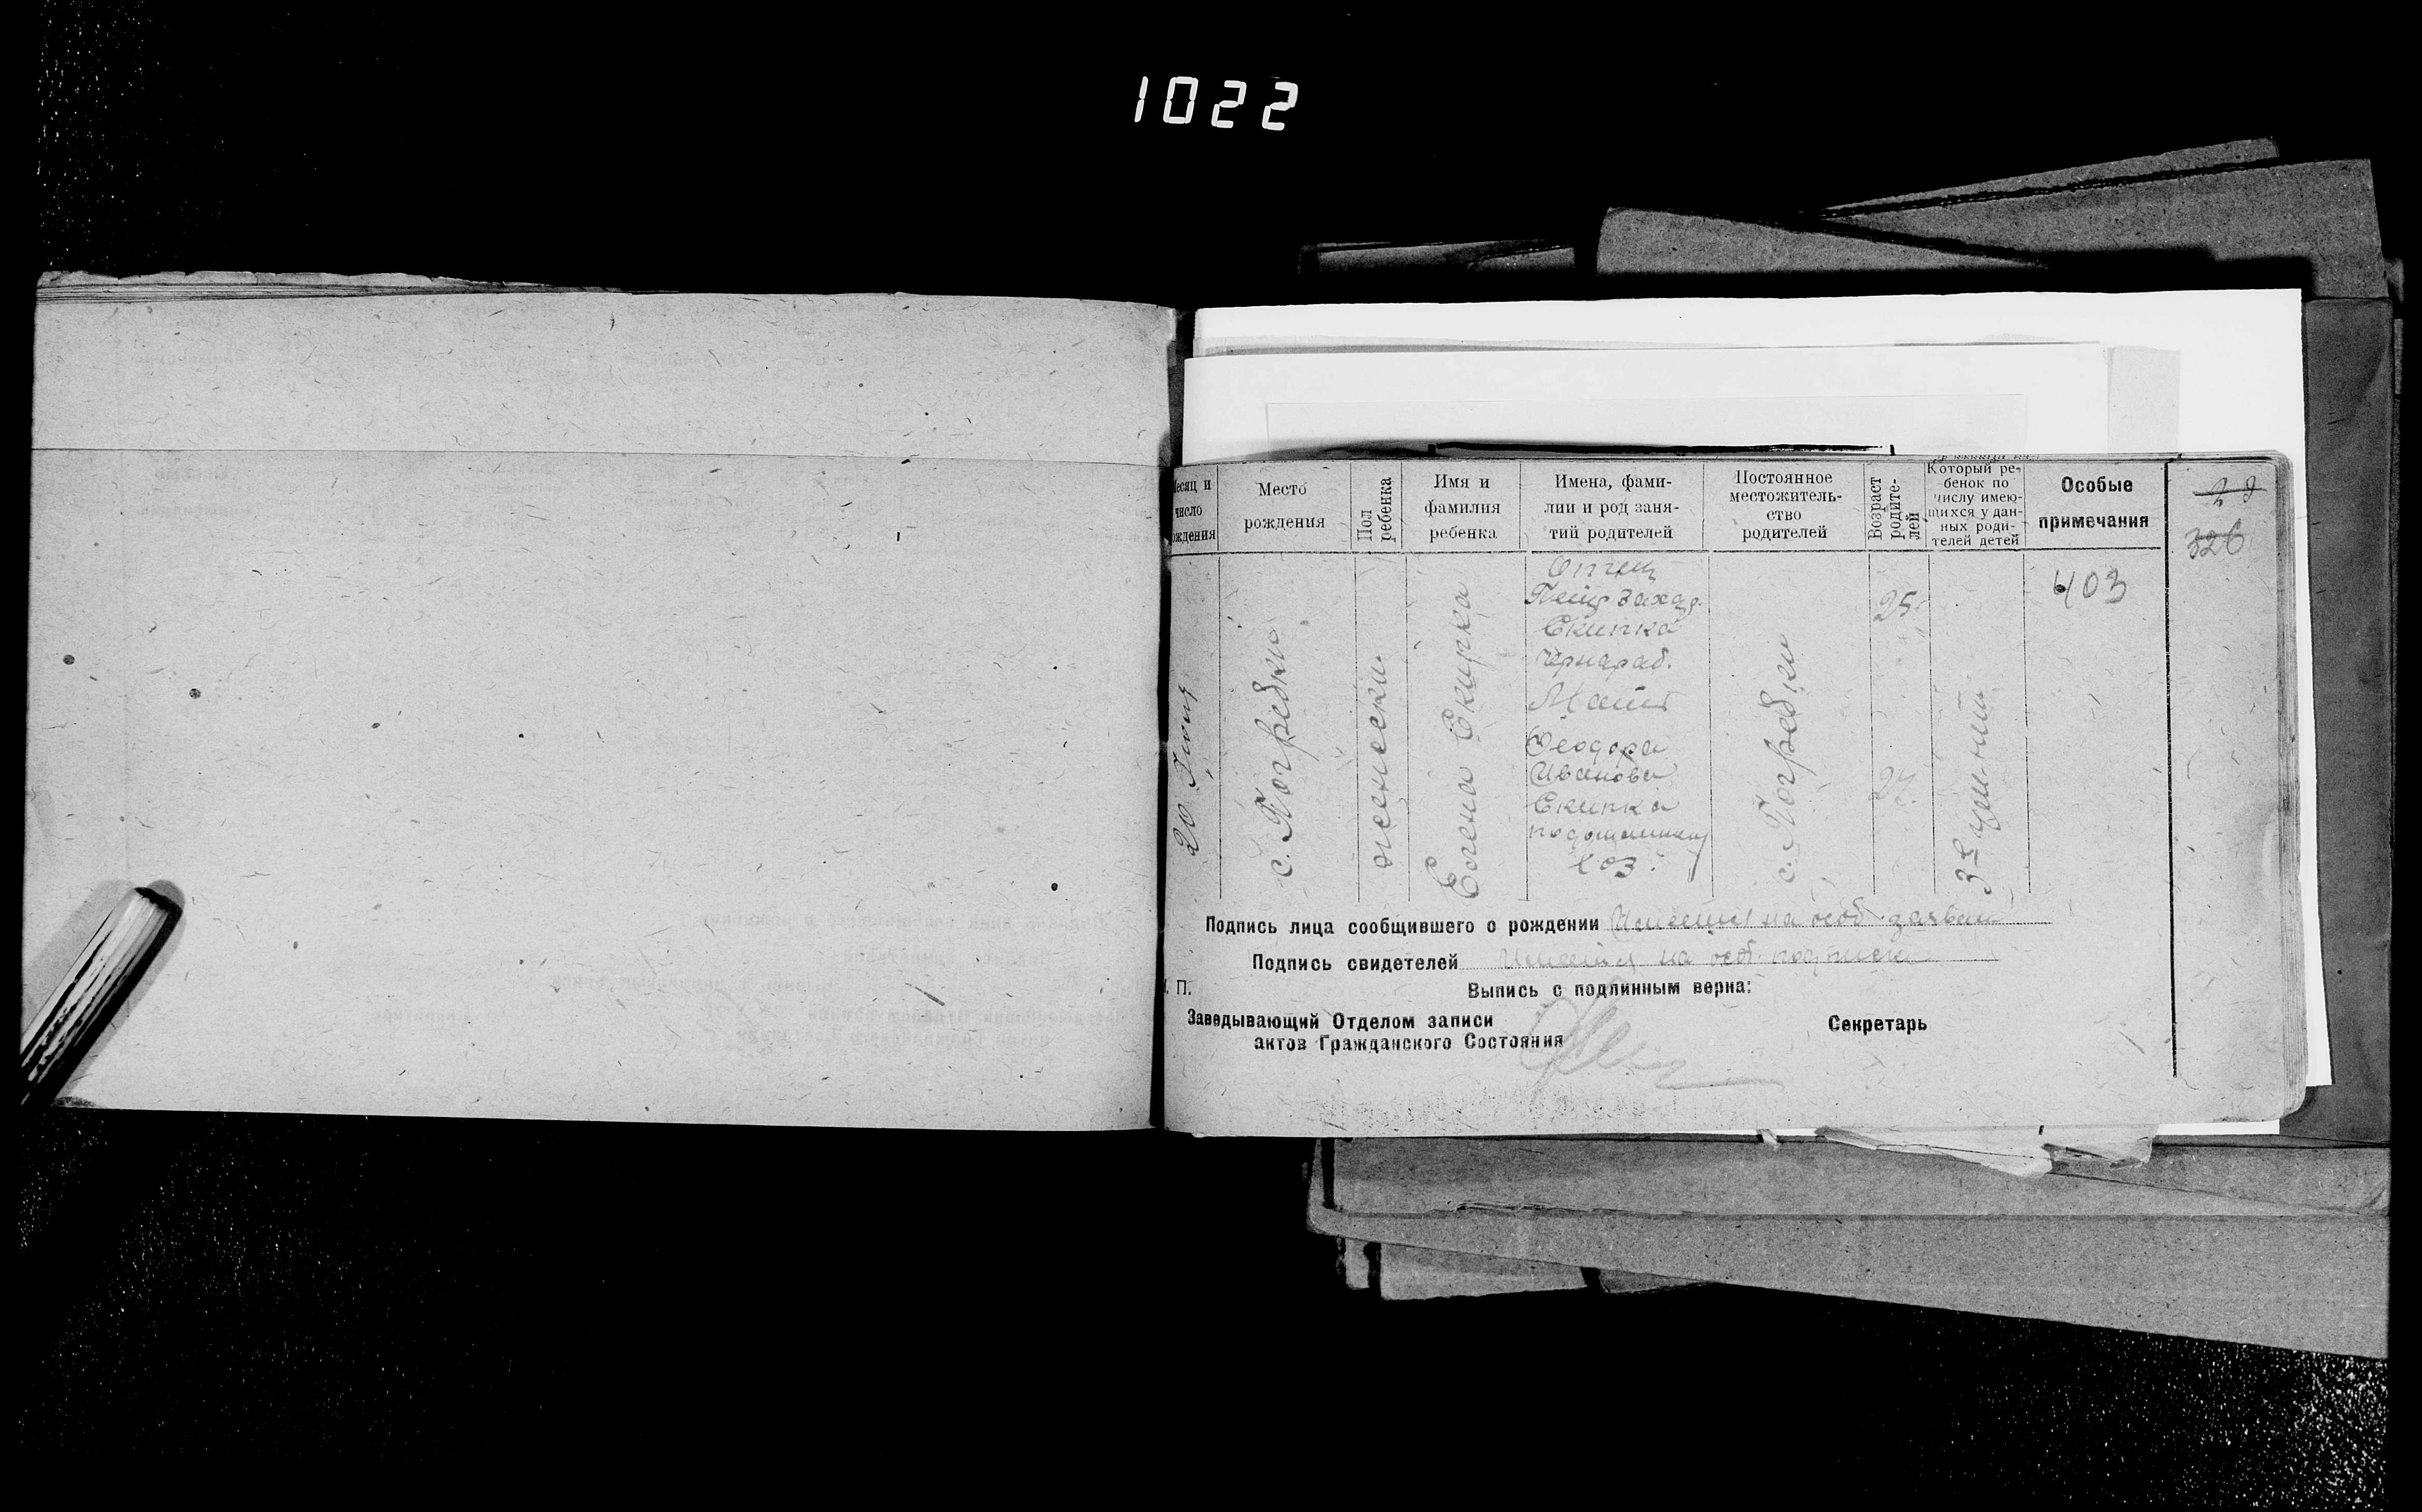 1022
Месяц и
число
рождения
Место
рождения
Пол
ребенка
Имя и
фамилия
ребенка
Имена, фами-
лии и род заня-
тий родителей
Постоянное
местожитель-
ство
родителей
Возраст
родите-
лей
Который ре-
бенок по
числу имею-
щихся у дан-
ных роди-
телей детей
Особые
примечания
326
20
с. Погребки
женески
Елена Скирка
Отец
Захар.
Скипка
чернораб.
Мать
Феодора
Иванова
Скипка
с. Погребки
25
3й
403
Подпись лица сообщившего о рождении на особ. заявлен
Подпись свидетелей на особ. подписке
П.
Выпись с подлинным верна:
Заведывающий Отделом записи
актов Гражданского Состояния
Секретарь